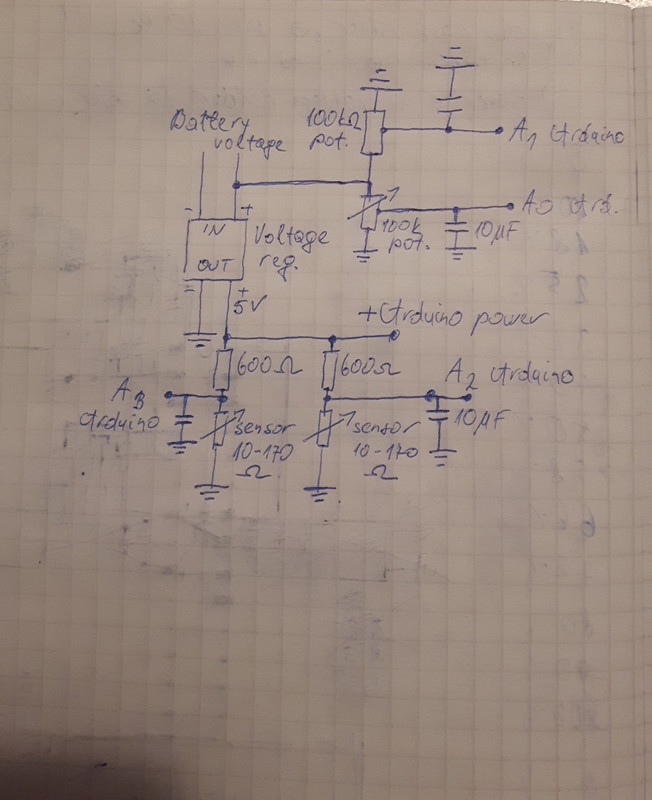 Battery
voltage
100kΩ
pot.
A1 Arduino
A0 Ard.
100k
pot.
10µF
- +
IN
OUT
Voltage
reg.
- +
5V
+Arduino power
600Ω
600Ω
A3
Arduino
A2 Arduino
10µF
sensor
10-170
Ω
sensor
10-170
Ω